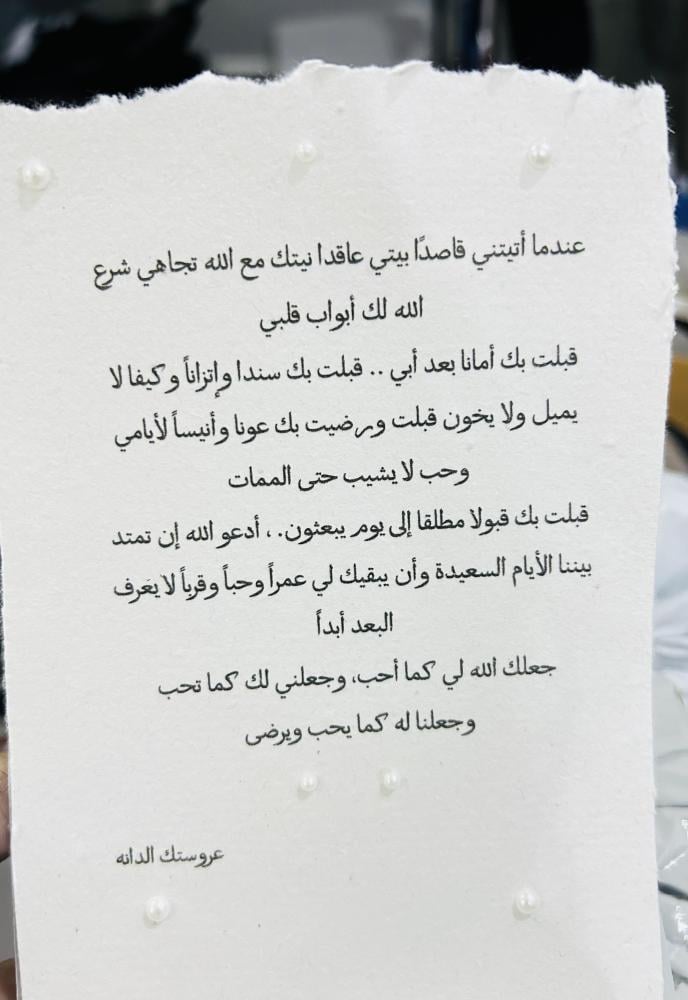 عندما أتيتني قاصدًا بيتي عاقدا نيتك مع الله تجاهي شرع
الله لك أبواب قلبي
قبلت بك أمانا بعد أبي .. قبلت بك سندا وإتزاناً وكيفا لا
يميل ولا يخون قبلت ورضيت بك عونا وأنيساً لأيامي
وحب لا يشيب حتى الممات
قبلت بك قبولا مطلقا إلى يوم يبعثون. ، أدعو الله إن تمتد
بيننا الأيام السعيدة وأن يبقيك لي عمراً وحباً وقرباً لا يعَرف
البعد أبداً
جعلك الله لي كما أحب، وجعلني لك كما تحب
وجعلنا له كما يحب ويرضى
عروستك الدانه